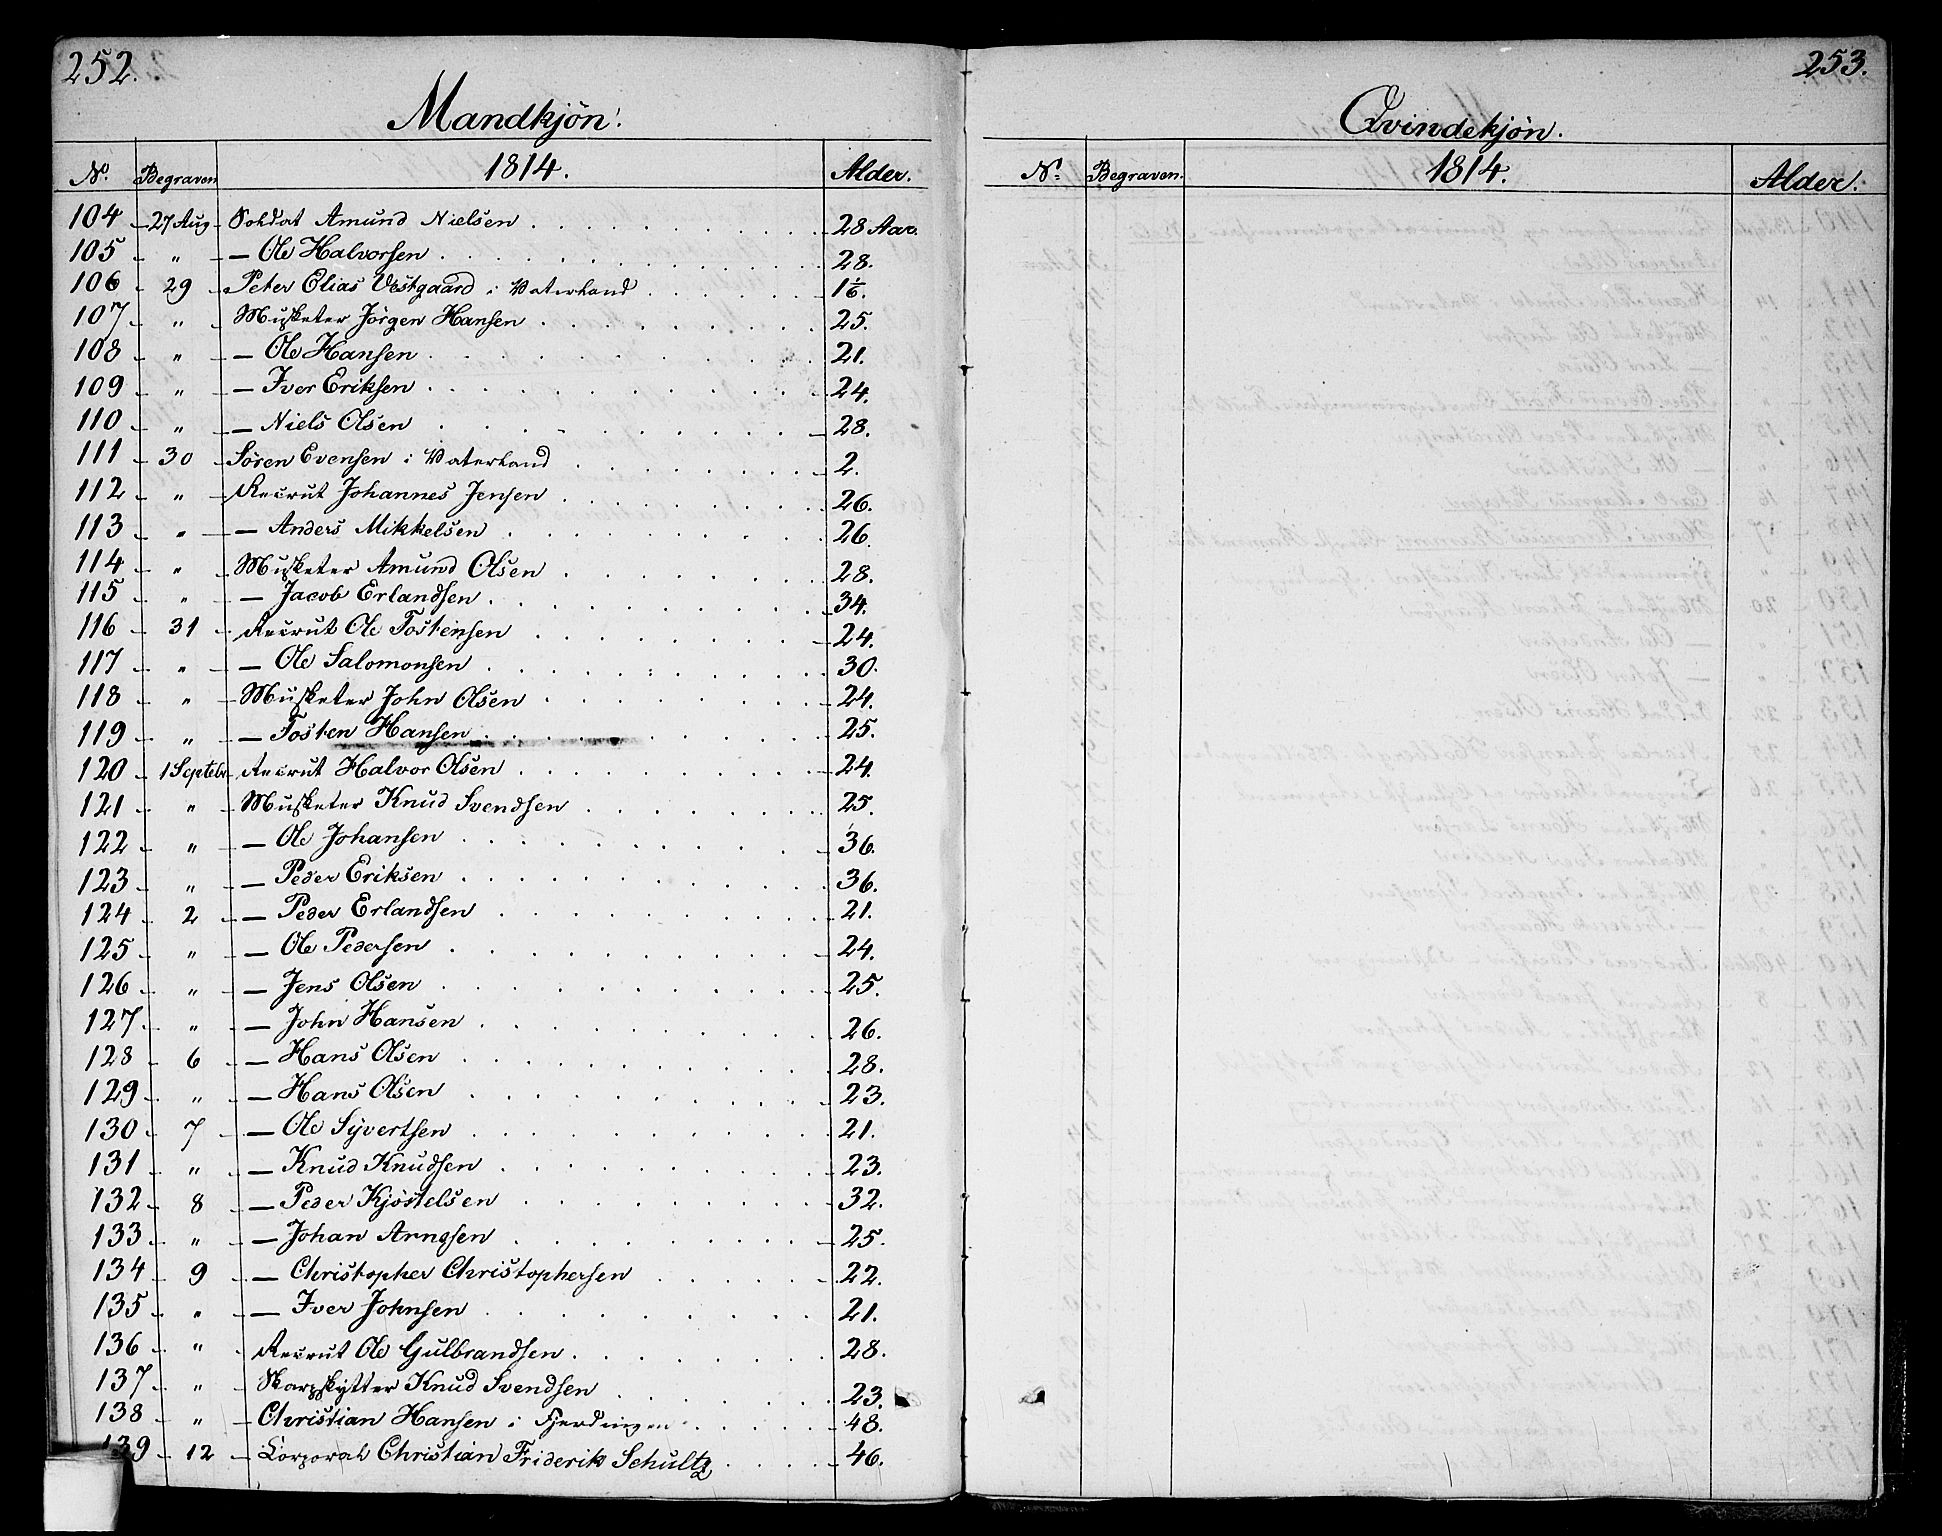 252.
Mandkjön.
No. Begraven 1814. Alder.
104 27 Aug Soldat Amund Nielsen 28 Aar.
105 " — Ole Halvorsen 28.
106 29 Peter Elias Vestgaard i Vaterland 1 1/6.
107 " Musketer Jörgen Hansen 25.
108 " — Ole Hansen 21.
109 " — Iver Eriksen 24.
110 " — Niels Olsen 28.
111 30 Sören Evensen i Vaterland 2.
112 " Recrut Johannes Jensen 26.
113 " — Anders Mikkelsen 26.
114 " Musketer Amund Olsen 28.
115 " — Jacob Erlandsen 34.
116 31 Recrut Ole Tostensen 24.
117 " — Ole Salomonsen 30.
118 " Musketer John Olsen 24.
119 " — Tosten Hansen 25.
120 1 Septebr Recrut Halvor Olsen 24.
121 " Musketer Knud Svendsen 25.
122 " — Ole Johansen 36.
123 " — Peder Eriksen 36.
124 2 — Peder Erlandsen 21.
125 " — Ole Pedersen 24.
126 " — Jens Olsen 25.
127 " — John Hansen 26.
128 6 — Hans Olsen 28.
129 " — Hans Olsen 23.
130 7 — Ole Syvertsen 21.
131 " — Knud Knudsen 23.
132 8 — Peder Kjöstelsen 32.
133 " — Johan Arnesen 25.
134 9 — Christopher Christophersen 22.
135 " — Iver Johnsen 21.
136 " Recrut Ole Gulbrandsen 28.
137 " Skarpskytter Knud Svendsen 23.
138 " Christian Hansen i Fjerdingen 48.
139 12 Corporal Christian Friderik Schultz 46.
253.
Qvindekjön.
No. Begraven. 1814. Alder.